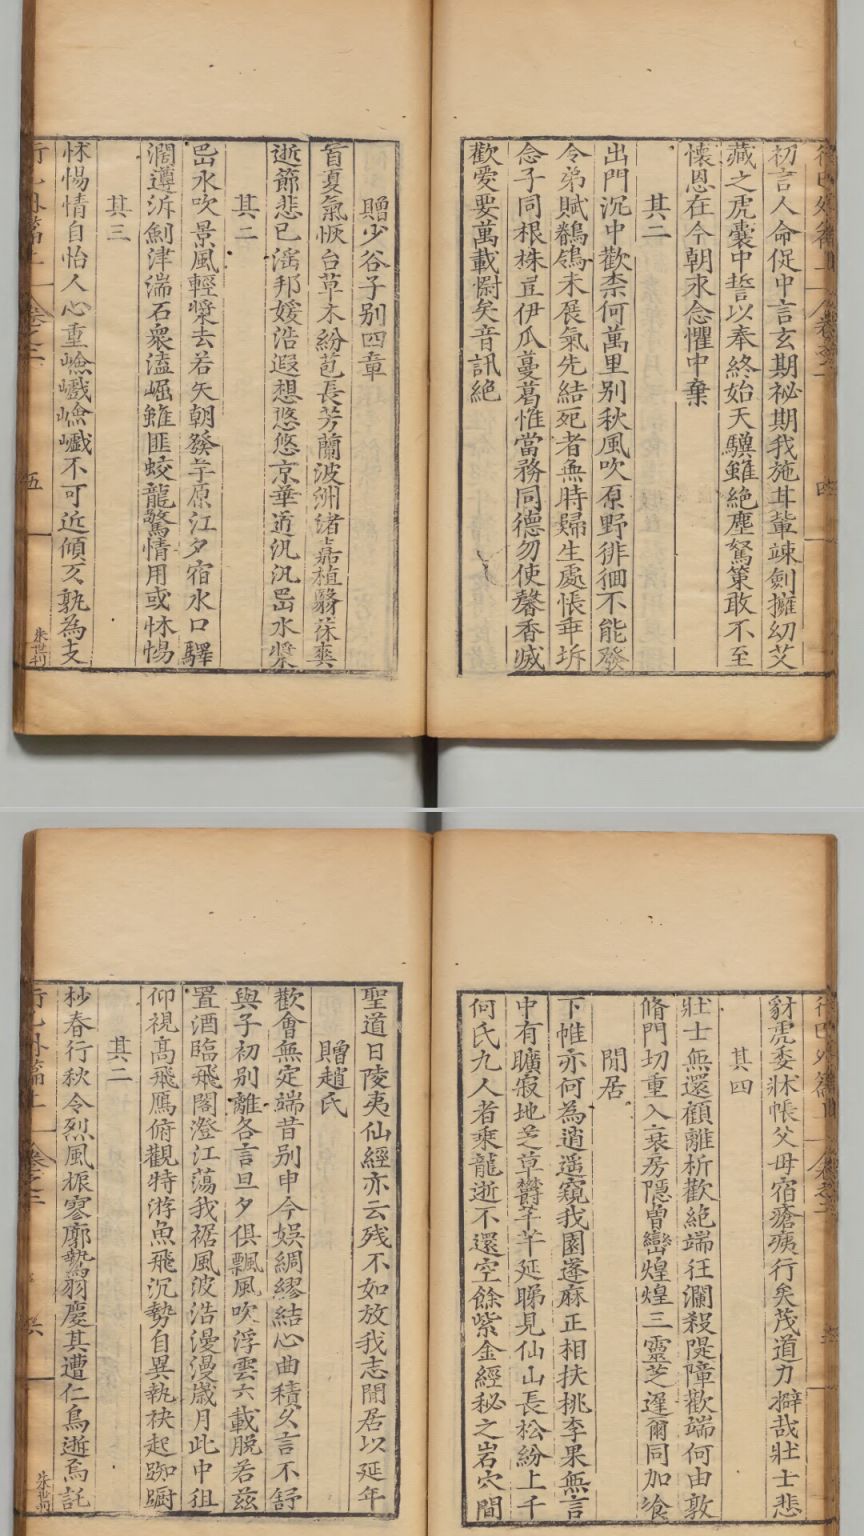 初言人命促中言玄期祕期我施耳輩竦劍擁幼艾
藏之虎囊中誓以奉終始天驥雖絶塵駑策敢不至
懷恩在今朝永念懼中棄
其二
出門沉中歡柰何萬里別秋風吹原野徘徊不能發
令弟賦鶺鴒未展氣先結死者無時歸生處悵乖坼
念子同根株豆伊瓜蔓葛惟當務同德勿使馨香滅
歡愛要萬載慰矣音訊絶
贈少谷子別四章
首夏氣恢台草木紛苞長芳蘭波洲渚嘉植翳蓀爽
逝節悲已滛邦媛浩遐想悠悠京華道汎汎岷水槳
其二
岷水吹景風輕槳去若矢朝發羊原江夕宿水口驛
㵎遵泝劎津湍石衆溘崛雖匪蛟龍驚情用或怵惕
其三
怵惕情自怡人心重嶮巇嶮巇不可近傾天孰為支
伍
朱世䂖
豺虎委牀帳父毋宿瘡痍行矣茂道力擗哉壯士悲
其四
壯士無還顧離析歡絶端狂瀾殺隄障歡端何由敦
脩門切重入哀房隱曽巒煌煌三靈芝逢爾同加飡
閒居
下帷亦何為逍遥窺我園蓬麻正相扶挑李果無言
中有曠寂地芝草鬱芊芊延睇見仙山長松紛上千
何氏九人者乘龍逝不還空餘紫金經秘之岩穴間
聖道日陵夷仙經亦云残不如放我志閒居以延年
贈趙氏
歡會無定端昔别申今娯綢繆結心曲積久言不舒
與子初別離各言旦夕俱飄風吹浮雲六載脫若兹
置酒臨飛閣澄江蕩我裾風波浩漫漫歳月此中徂
仰視髙飛鴈俯觀特游魚飛沉勢自異執袂起踟蹰
其二
杪春行秋令烈風振寥廓鷙羽慶其遭仁鳥逝焉託
朱世䂖